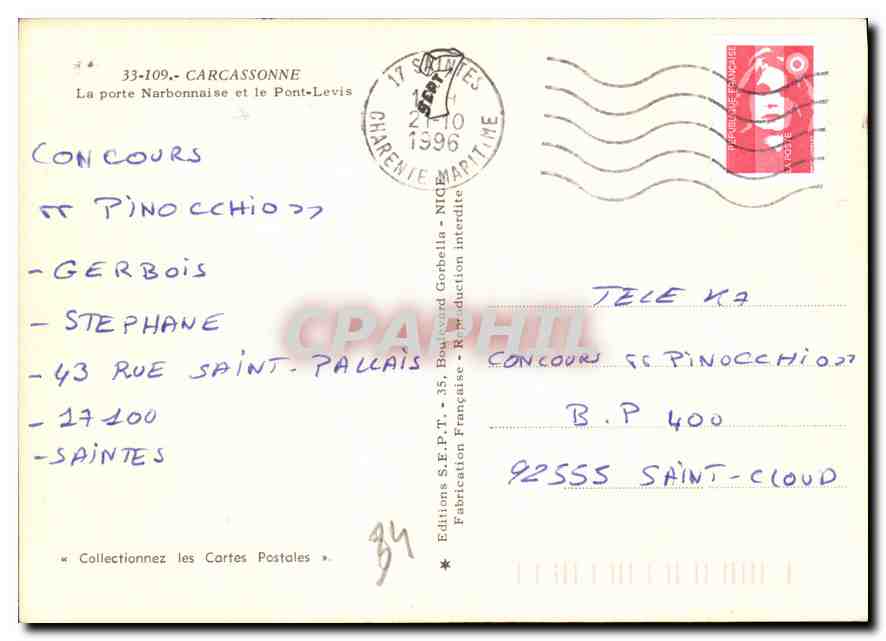 33-109.- CARCASSONNE
La porte Narbonnaise et le Pont-Levis
17 SAINTES
21-10
1996
CHARENTE MARITIME
SEPT
REPUBLIQUE FRANÇAISE
LA POSTE
CONCOURS
« PINOCCHIO »
- GERBOIS
- STEPHANE
- 43 RUE SAINT-PALLAIS
- 17100
- SAINTES
« Collectionnez les Cartes Postales ».
34
Editions S.E.P.T. - 35, Boulevard Gorbella - NICE
Fabrication Française - Reproduction interdite
CPAPHIL
TELE K7
CONCOURS « PINOCCHIO »
B.P 400
92555 SAINT-CLOUD